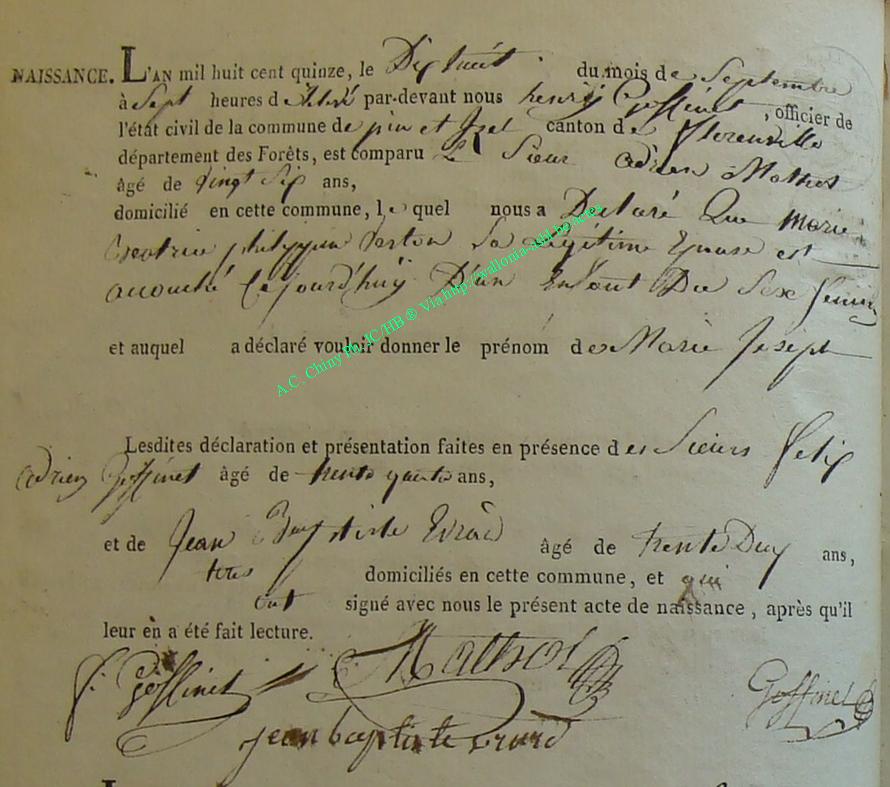 NAISSANCE. L'AN mil huit cent quinze, le Dix huit du mois de Septembre
à Sept heures de par-devant nous henry Goffinet, officier de
l'état civil de la commune de pin et Izel canton de florenville
département des Forêts, est comparu Le Sieur adrien Mathot
âgé de vingt Six ans,
domicilié en cette commune, le quel nous a Declaré Que marie
philippin Sa légitime Epouse est
accouché cejourd'huÿ D'un Enfant Du Sexe feminin
et auquel a déclaré vouloir donner le prénom de Marie Joseph
Lesdites déclaration et présentation faites en présence des Sieurs felix
adrien Goffinet âgé de trente quatre ans,
et de Jean Baptiste Evrard âgé de trente Deux ans,
tous domiciliés en cette commune, et qui
ont signé avec nous le présent acte de naissance, après qu'il
leur en a été fait lecture.
f. Goffinet Mathot Goffinet
jean baptiste evrard
A.C. Chiny Ph. JC/HB ® Via http://wallonia-asbl.be/actes